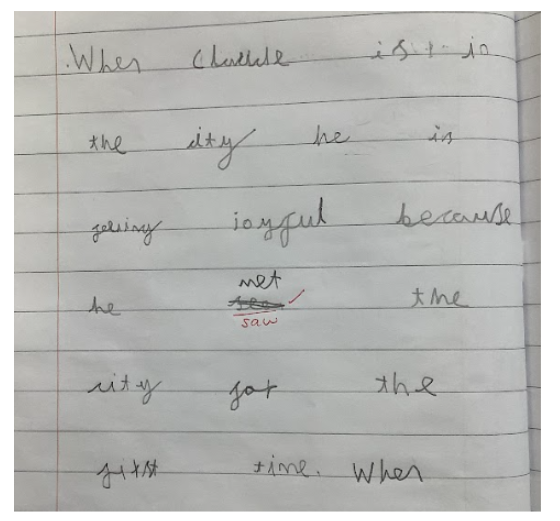 When Claude is in
the city he is
feeling joyful because
he met the
saw
city for the
first time. When